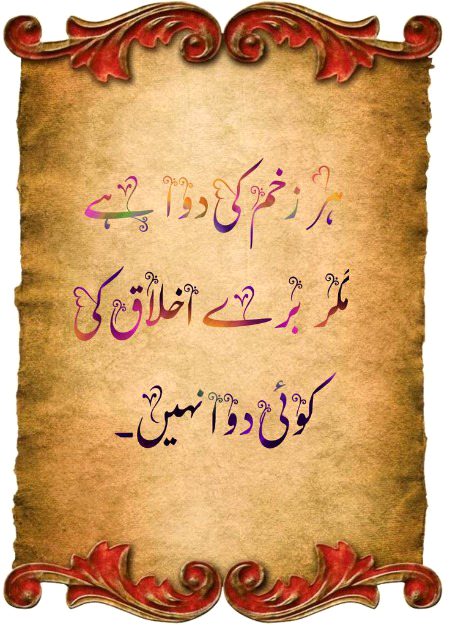 ہر زخم کی دوا ہے
مگر برے اخلاق کی
کوئی دوا نہیں۔